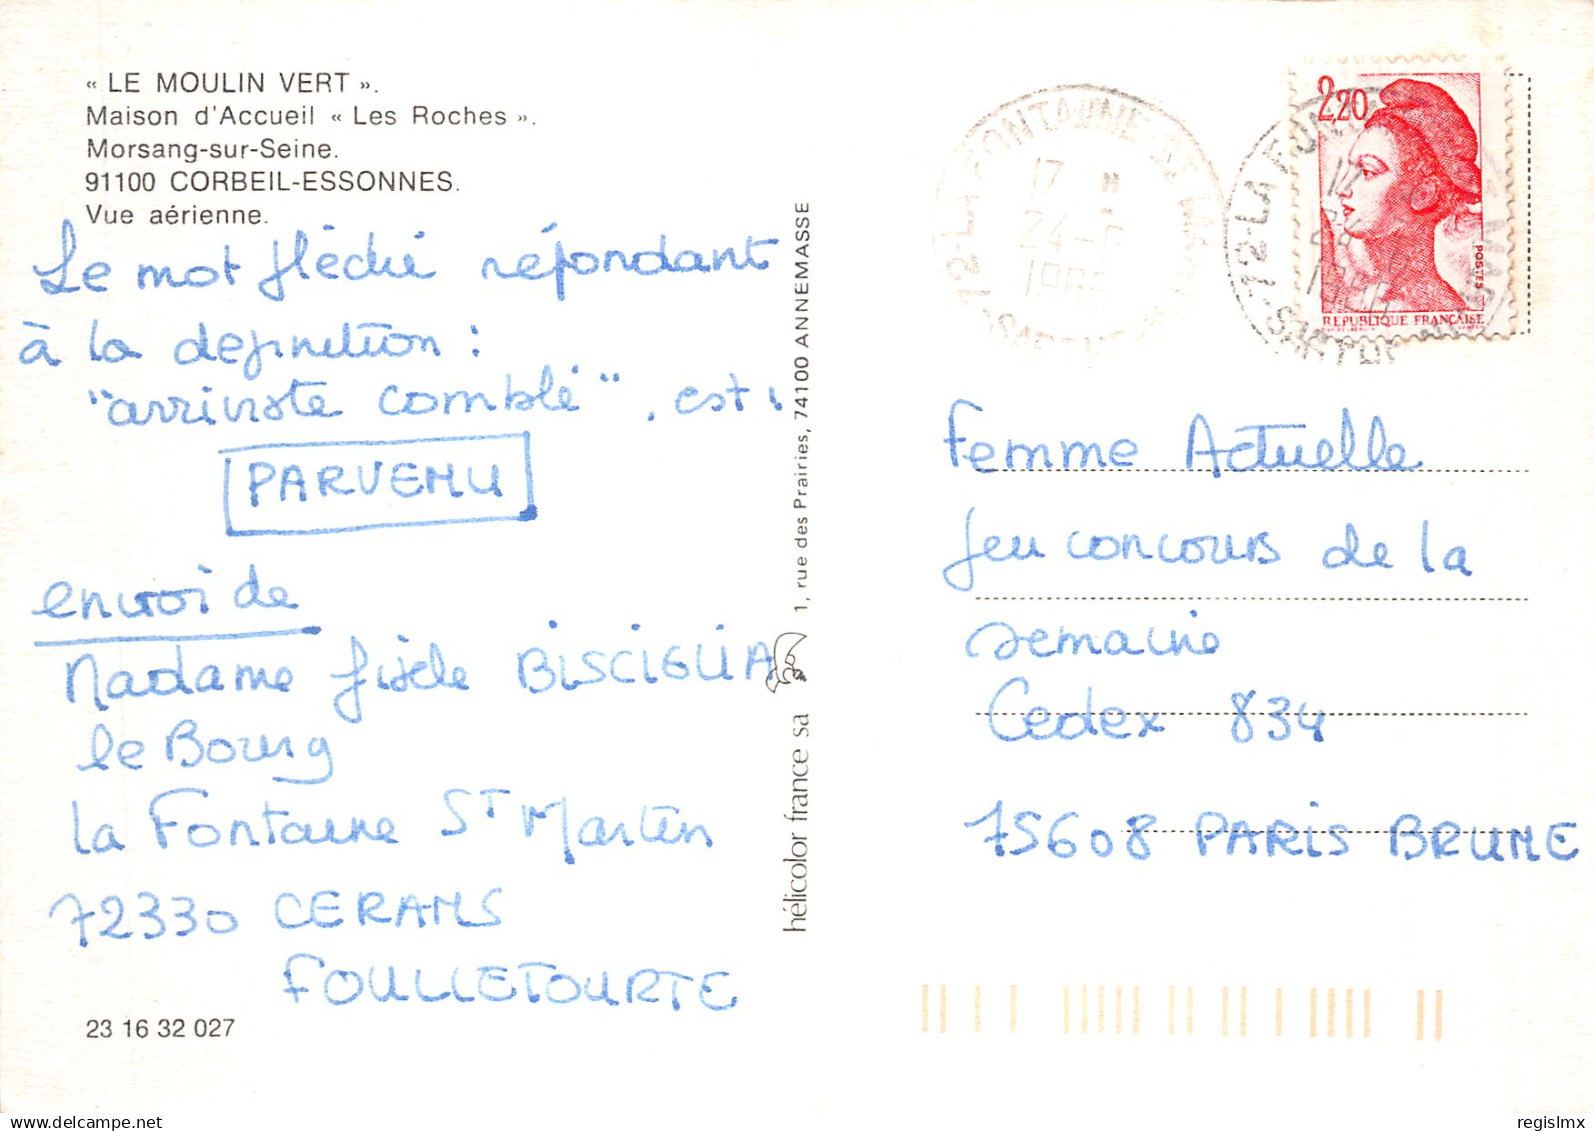 « LE MOULIN VERT ».
Maison d'Accueil « Les Roches ».
Morsang-sur-Seine.
91100 CORBEIL-ESSONNES.
Vue aérienne.
Le mot fléché répondant
à la definition :
"arriviste comblé", est :
PARVENU
envoi de
Madame Gisèle BISCIGLIA
le Bourg
la Fontaine St Martin
72330 CERANS
FOULLETOURTE
23 16 32 027
hélicolor france sa 1, rue des Prairies, 74100 ANNEMASSE
72-LA FONTAINE-ST MARTIN
17 H
24-
SARTHE
2,20
POSTES
REPUBLIQUE FRANÇAISE
72-LA FONTAINE
SARTHE
Femme Actuelle
Jeu concours de la
semaine
Cedex 834
75608 PARIS BRUNE
delcampe.net
regislmx